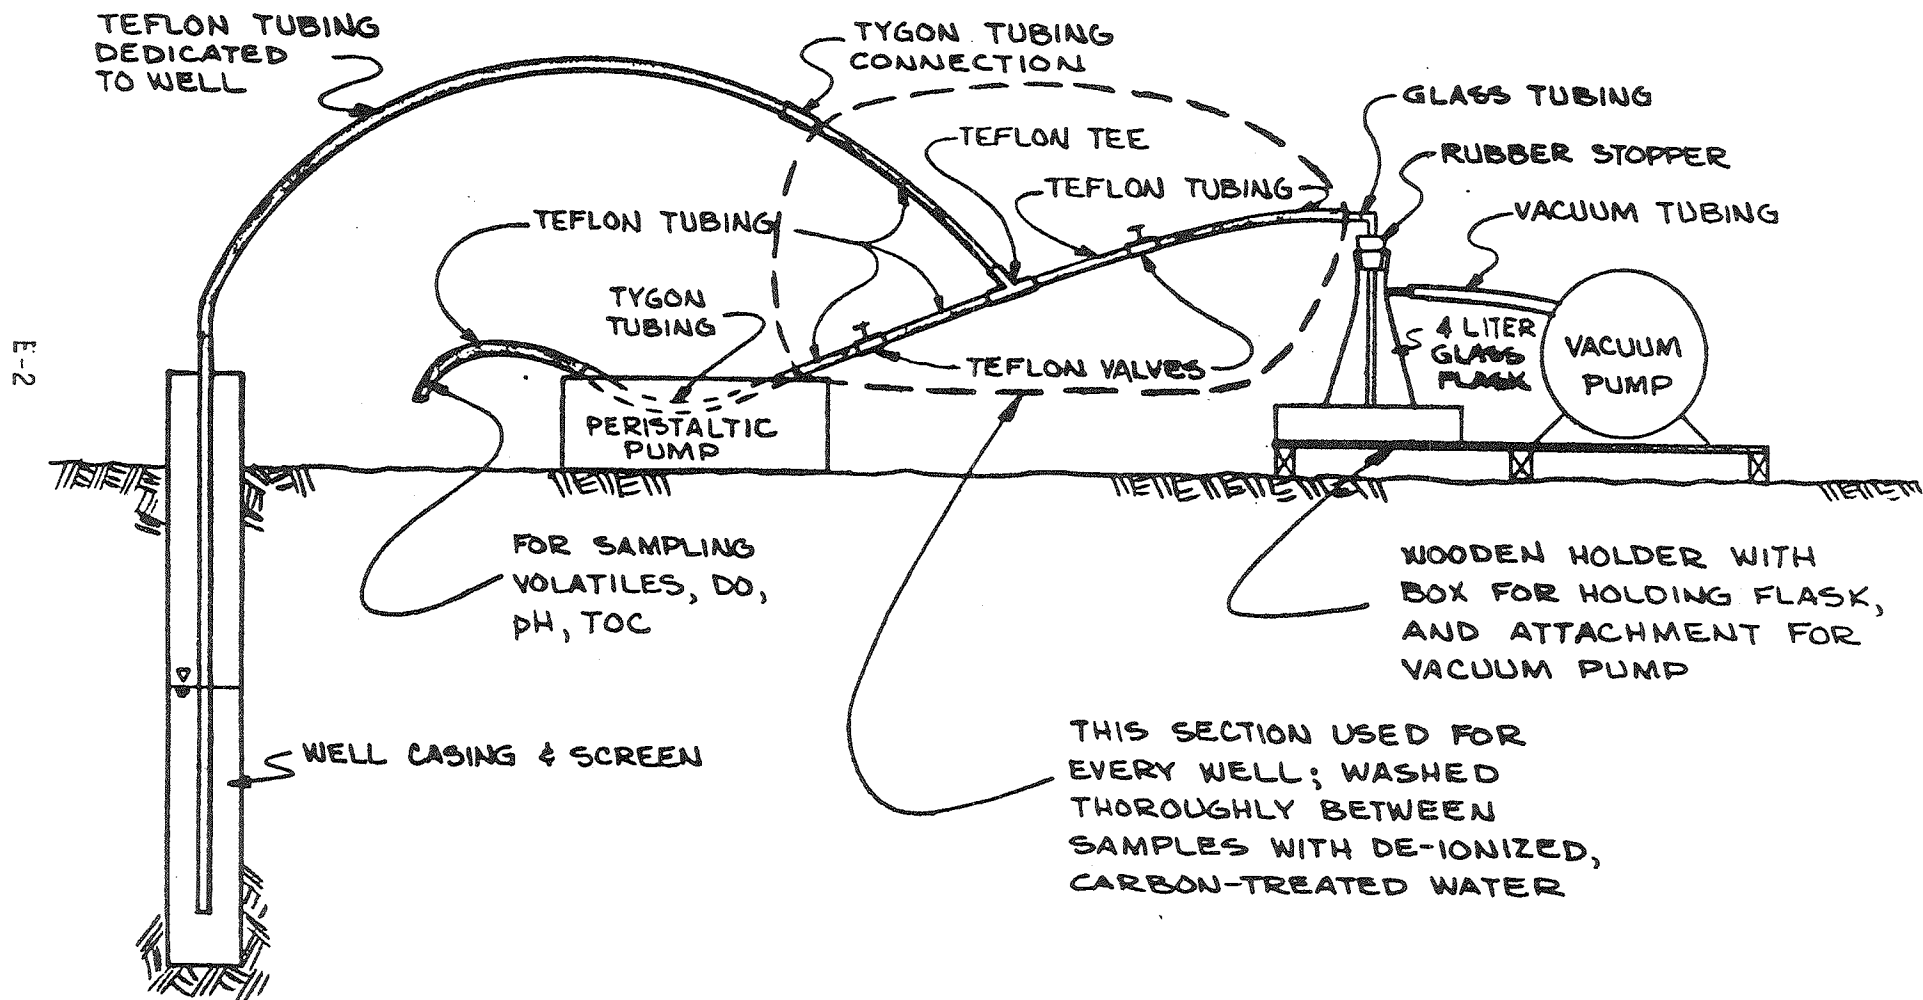 TEFLON TUBING
DEDICATED
TO WELL
TYGON TUBING
CONNECTION
GLASS TUBING
TEFLON TEE
RUBBER STOPPER
TEFLON TUBING
VACUUM TUBING
TEFLON TUBING
TYGON
TUBING
4 LITER
GLASS
FLASK
VACUUM
PUMP
TEFLON VALVES
PERISTALTIC
PUMP
E-2
FOR SAMPLING
VOLATILES, DO,
pH, TOC
WOODEN HOLDER WITH
BOX FOR HOLDING FLASK,
AND ATTACHMENT FOR
VACUUM PUMP
WELL CASING & SCREEN
THIS SECTION USED FOR
EVERY WELL; WASHED
THOROUGHLY BETWEEN
SAMPLES WITH DE-IONIZED,
CARBON-TREATED WATER